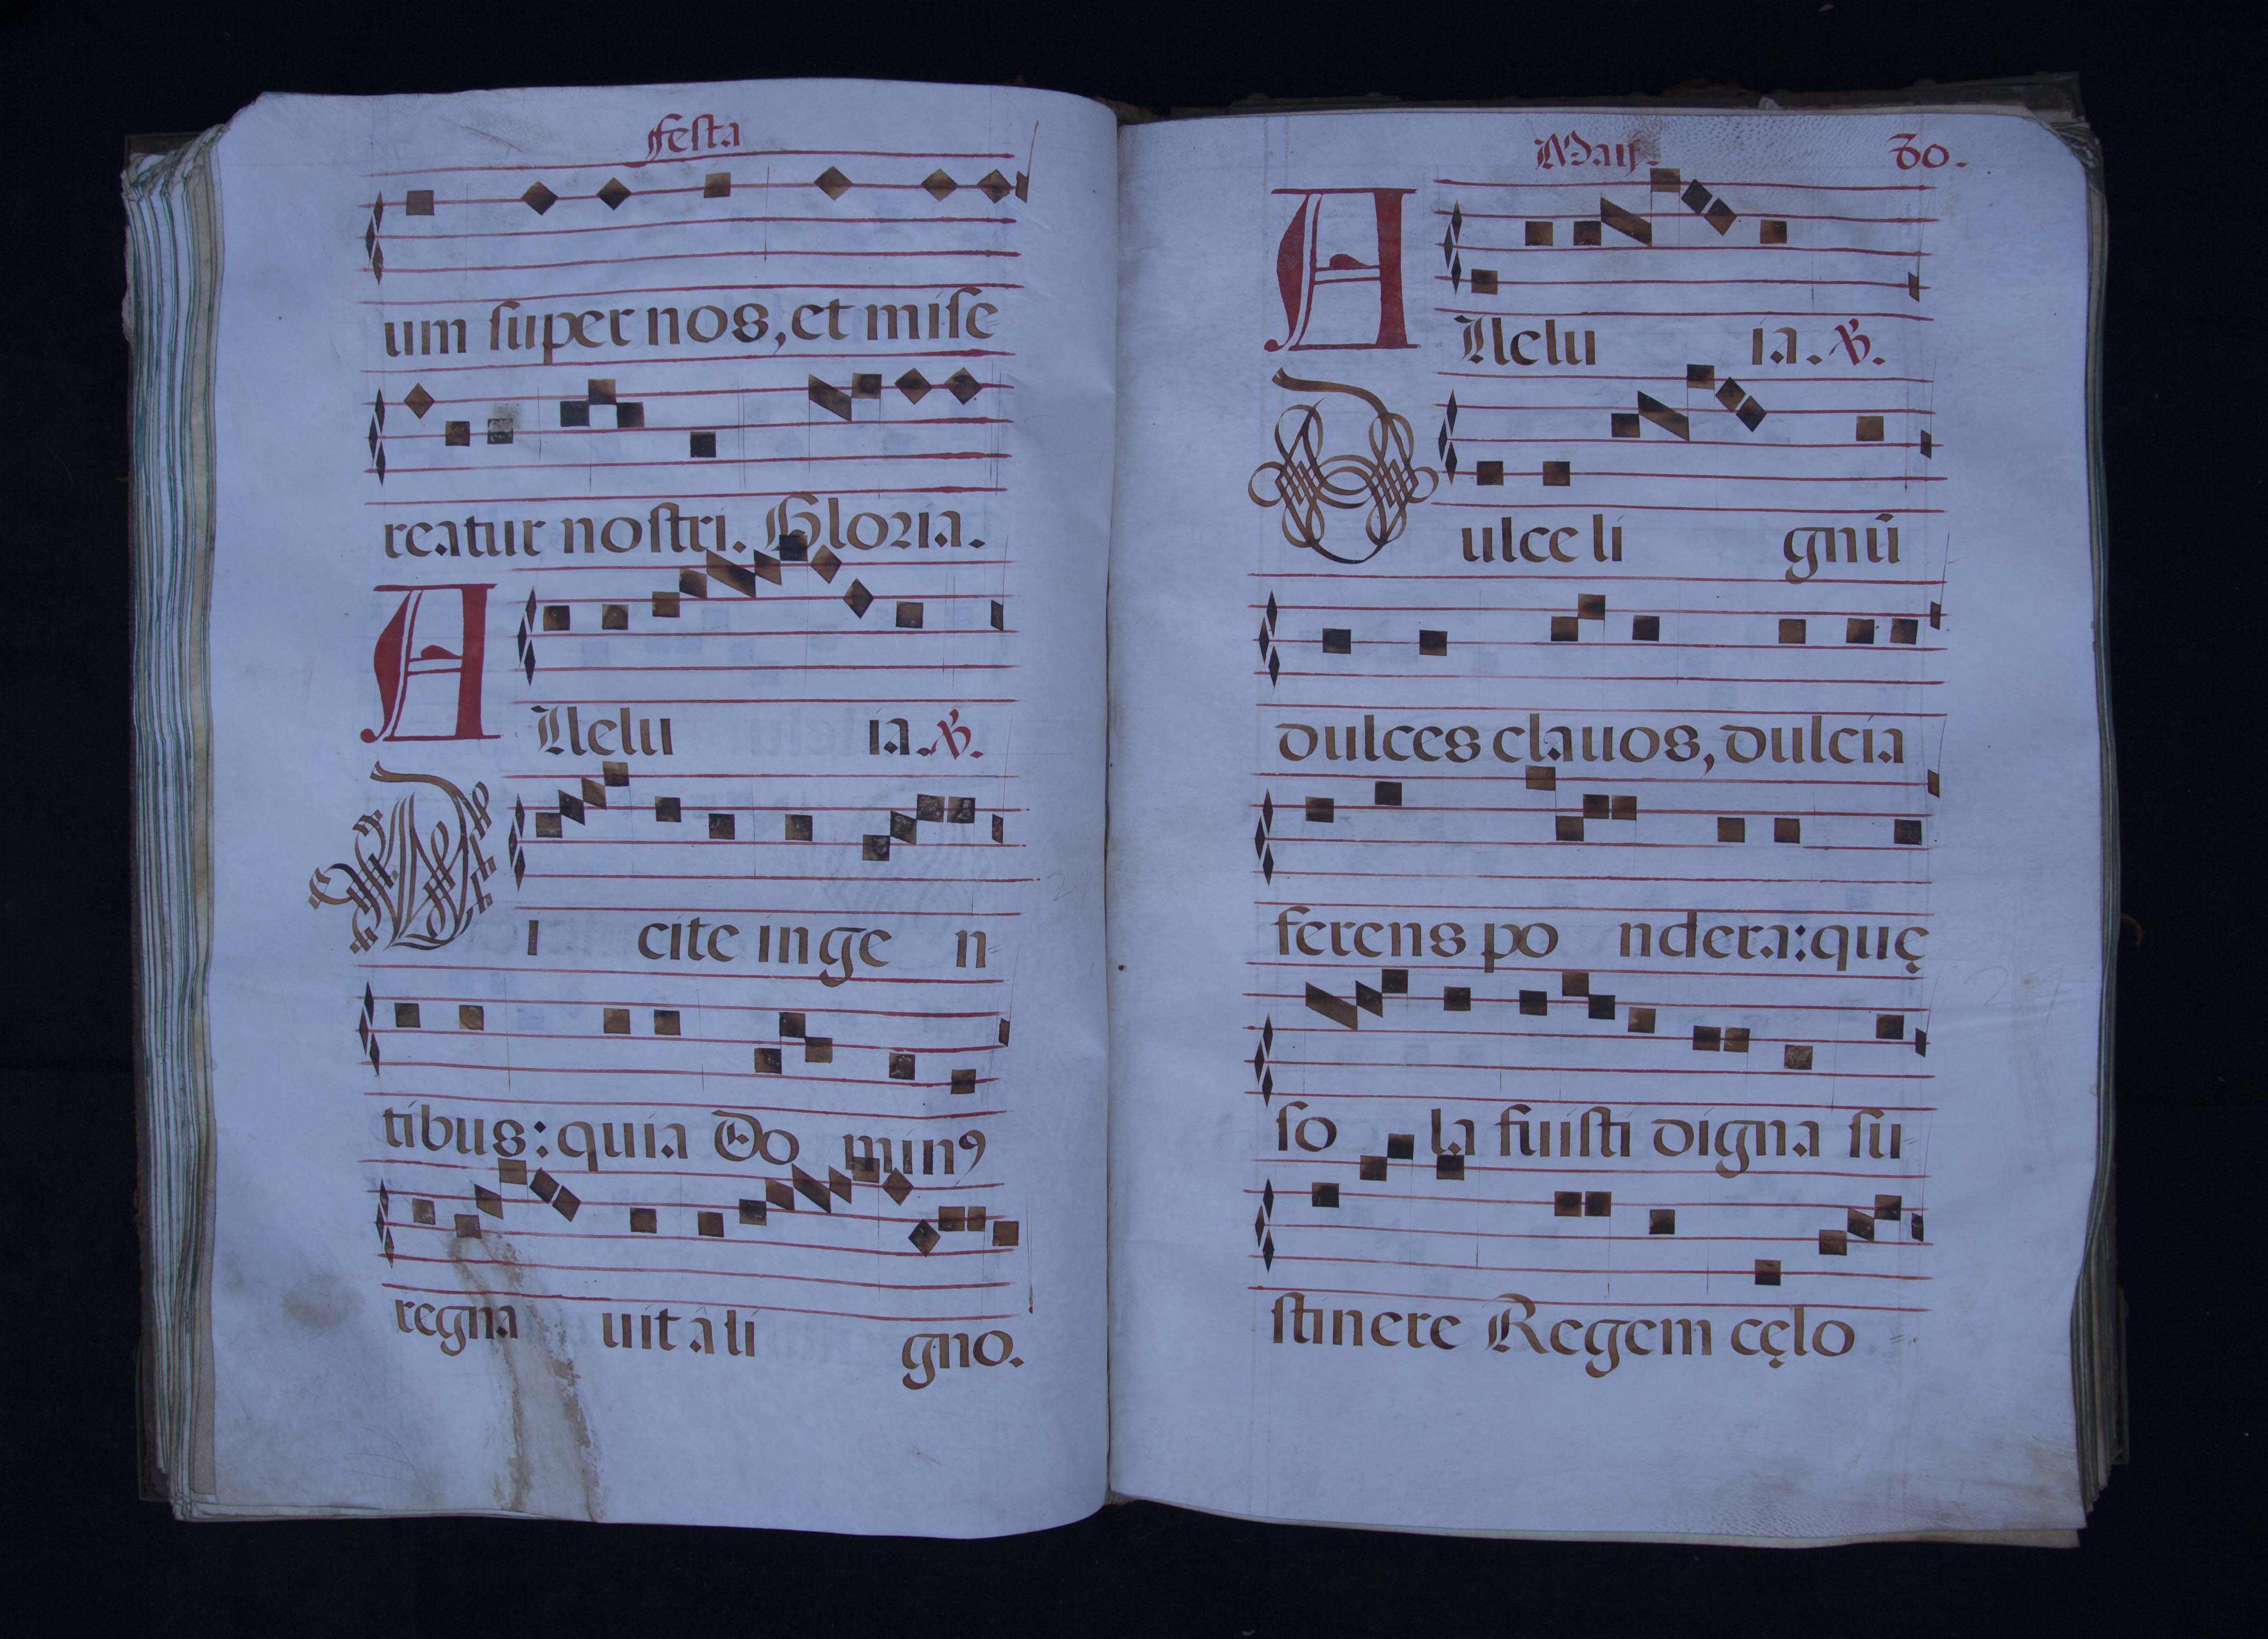 Festa
um super nos, et mise=
reatur nostri. Gloria.
Allelu ia. ℣.
Di cite in ge n=
tibus: quia Do minꝰ
regna uit â li gno.
Maij. 80.
Allelu ia. ℣.
Dulce li gnū
dulces clauos, dulcia
ferens po ndera: quę
so la fuisti digna su=
stinere Regem cęlo=